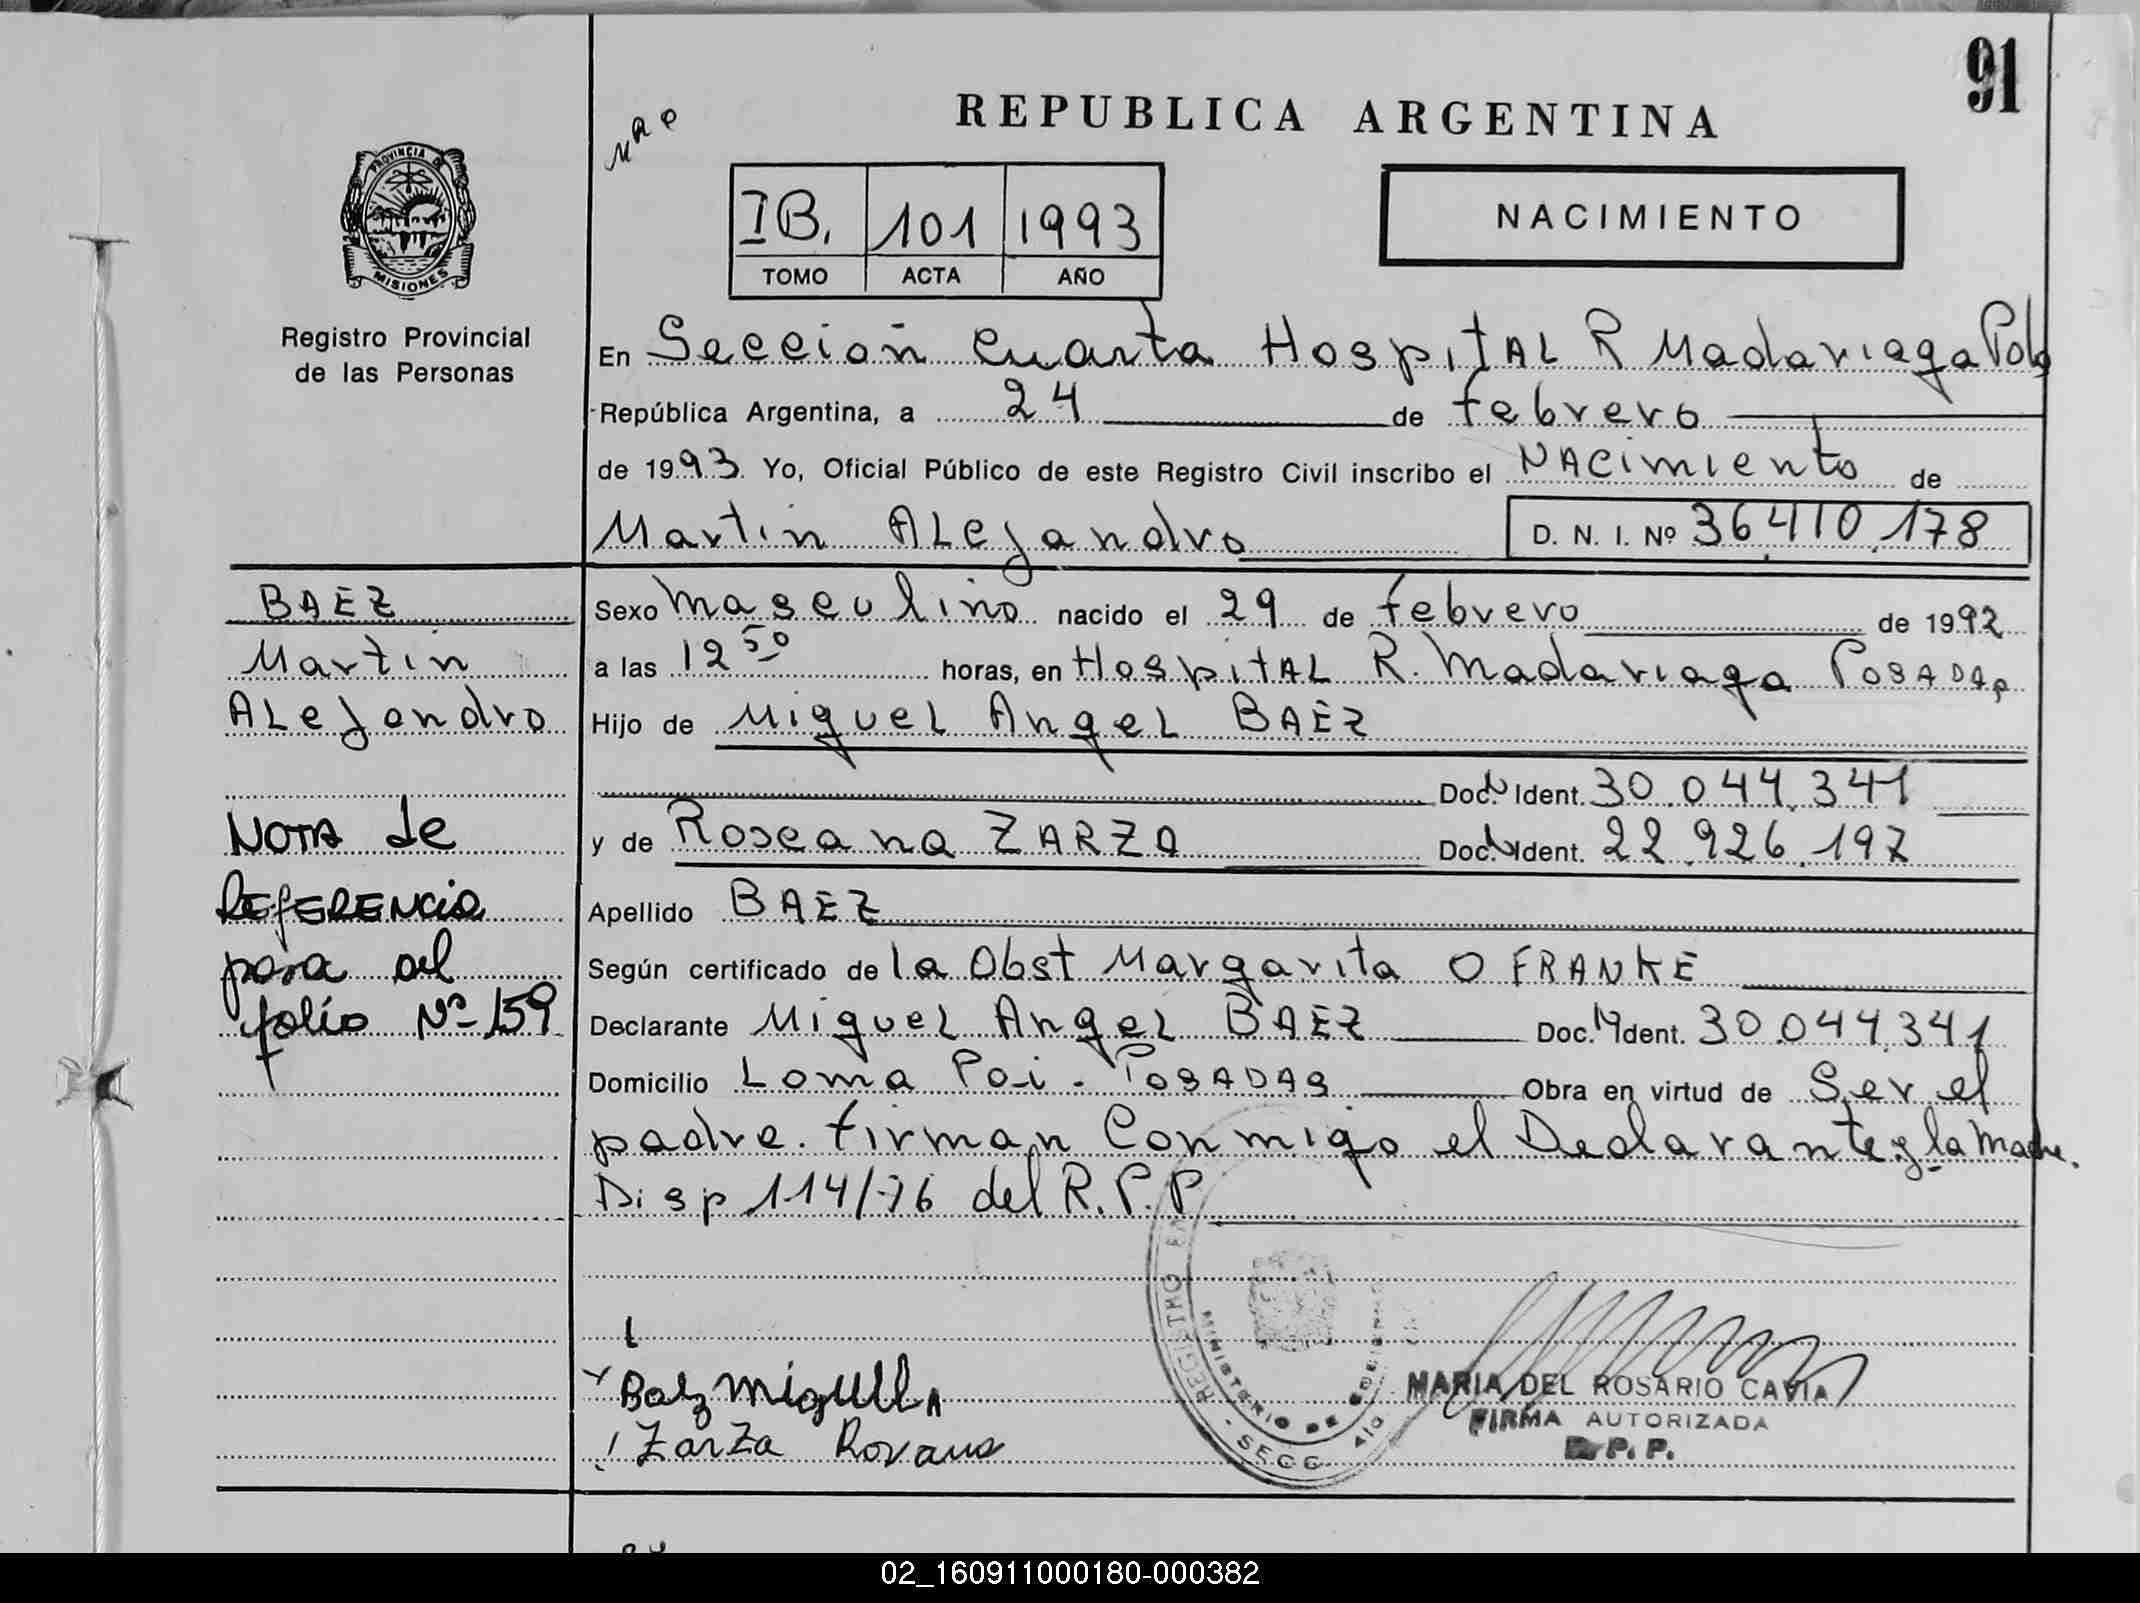 91
REPUBLICA ARGENTINA
PROVINCIA DE
MISIONES
IB. 101 1993
TOMO ACTA AÑO
NACIMIENTO
Registro Provincial
de las Personas
En Sección Cuarta Hospital R Madariaga
República Argentina, a 24 de febrero
de 1993. Yo, Oficial Público de este Registro Civil inscribo el Nacimiento de
Martin Alejandro D. N. I. Nº 36.410.178
BAEZ
Martin
Alejandro
Sexo Masculino nacido el 29 de febrero de 1992
a las 12 50 horas, en Hospital R. Madariaga Posadas
Hijo de Miguel Angel BAEZ
Doc. N Ident. 30.044.341
y de Roseana ZARZA Doc. N Ident. 22.926.197
Apellido BAEZ
Según certificado de la Obst Margarita O FRANKE
Declarante Miguel Angel BAEZ Doc. N Ident. 30.044.341
Domicilio Loma Poi - Posadas Obra en virtud de Ser el
padre. firman Conmigo el Declarante y la Madre.
Disp 114/76 del R.P.P
NOTA de
REFERENCIA
pasa al
folio Nº 159
Baez Miguel A
Zarza
REGISTRO
MINISTERIO DE
SECC
MARIA DEL ROSARIO CAVIA
FIRMA AUTORIZADA
P. P.
02_160911000180-000382